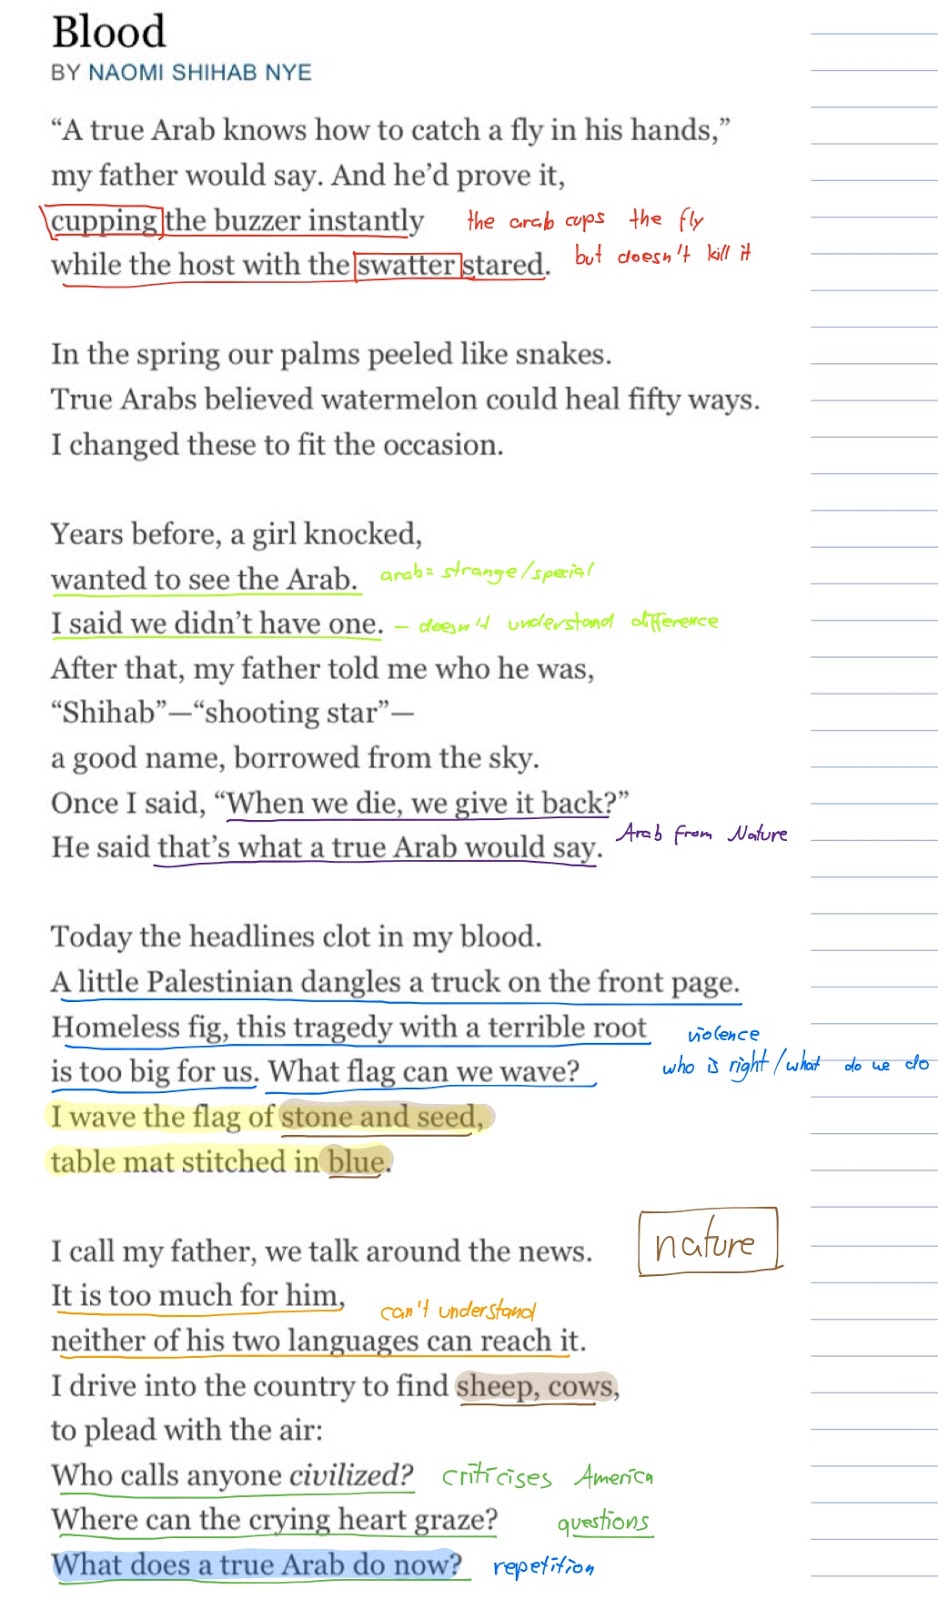 Blood
BY NAOMI SHIHAB NYE
“A true Arab knows how to catch a fly in his hands,”
my father would say. And he’d prove it,
cupping the buzzer instantly the arab cups the fly
while the host with the swatter stared. but doesn't kill it
In the spring our palms peeled like snakes.
True Arabs believed watermelon could heal fifty ways.
I changed these to fit the occasion.
Years before, a girl knocked,
wanted to see the Arab. arab= strange/special
I said we didn’t have one. – doesn't understand difference
After that, my father told me who he was,
“Shihab”—“shooting star”—
a good name, borrowed from the sky.
Once I said, “When we die, we give it back?”
He said that’s what a true Arab would say. Arab from Nature
Today the headlines clot in my blood.
A little Palestinian dangles a truck on the front page.
Homeless fig, this tragedy with a terrible root violence
is too big for us. What flag can we wave? who is right/what do we do
I wave the flag of stone and seed,
table mat stitched in blue.
I call my father, we talk around the news. nature
It is too much for him, can't understand
neither of his two languages can reach it.
I drive into the country to find sheep, cows,
to plead with the air:
Who calls anyone civilized? criticises America
Where can the crying heart graze? questions
What does a true Arab do now? repetition